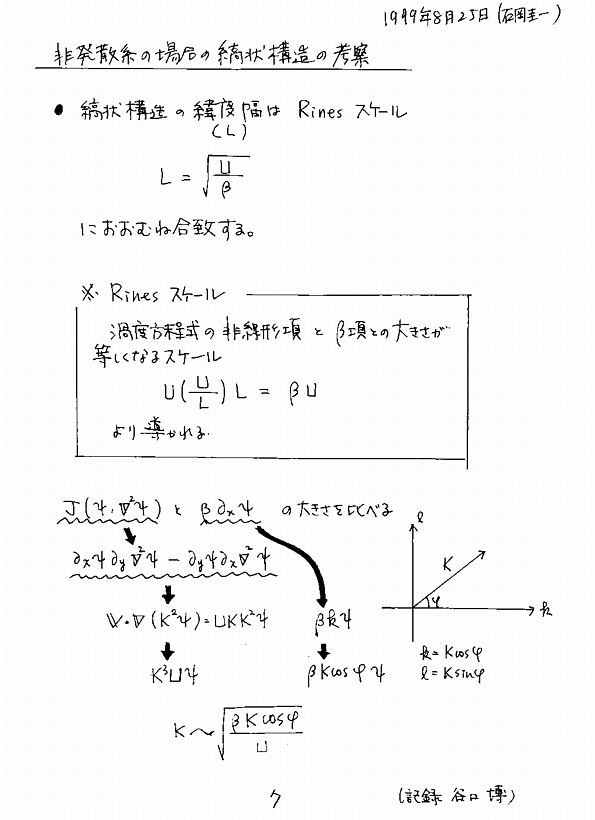 1999年8月25日(石岡圭一)
非発散系の場合の縞状構造の考察
● 縞状構造の緯度幅は Rines スケール
(L)
L = √(U/β)
におおむね合致する。
※ Rines スケール
渦度方程式の非線形項とβ項との大きさが
等しくなるスケール
U(U/L)L = βU
より導かれる
J(ψ,∇²ψ) と β∂xψ の大きさを比べる
∂xψ∂y∇²ψ − ∂yψ∂x∇²ψ
V・∇(K²ψ)=UKK²ψ βkψ
K³Uψ βKcosφψ
l
K
φ
k
k=Kcosφ
l=Ksinφ
K〜√(βKcosφ/U)
7
(記録 谷口 博)